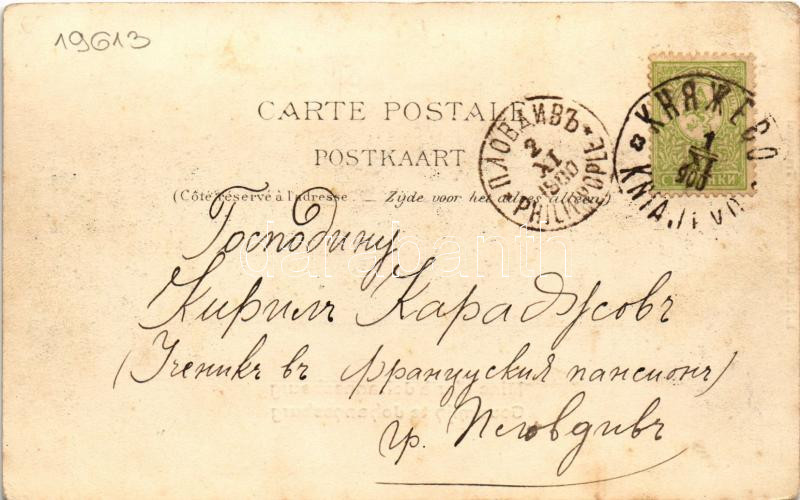 19613
CARTE POSTALE
POSTKAART
(Côté réservé à l'adresse. — Zijde voor het adres alleen)
ПЛОВДИВЪ
2
XI
1900
PHILIPPOPLE
КНЯЖЕВО
1
XI
900
KNIAJEVO
СТОТИНКИ
darabanth
Господину
Кирилъ Караджовъ
(Ученикъ въ Француския пансионъ)
гр. Пловдивъ